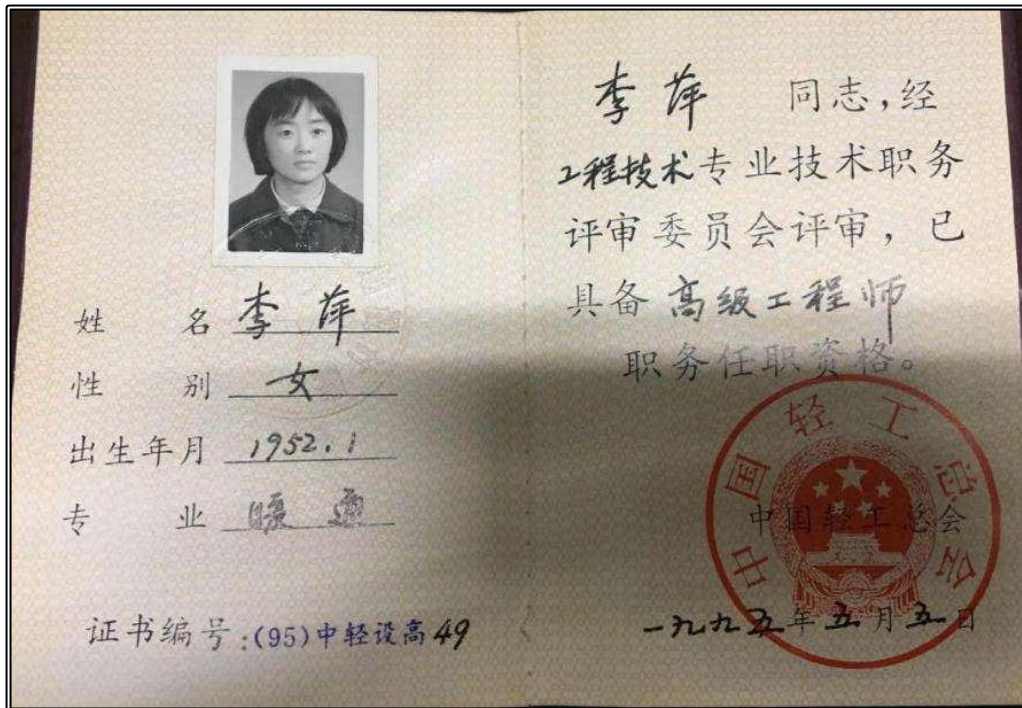 姓 名 李萍
性 别 女
出生年月 1952.1
专 业 暖通
证书编号:(95)中轻设高49
李萍 同志,经
工程技术专业技术职务
评审委员会评审,已
具备高级工程师
职务任职资格。
中国轻工总会
中国轻工总会
一九九五年五月五日